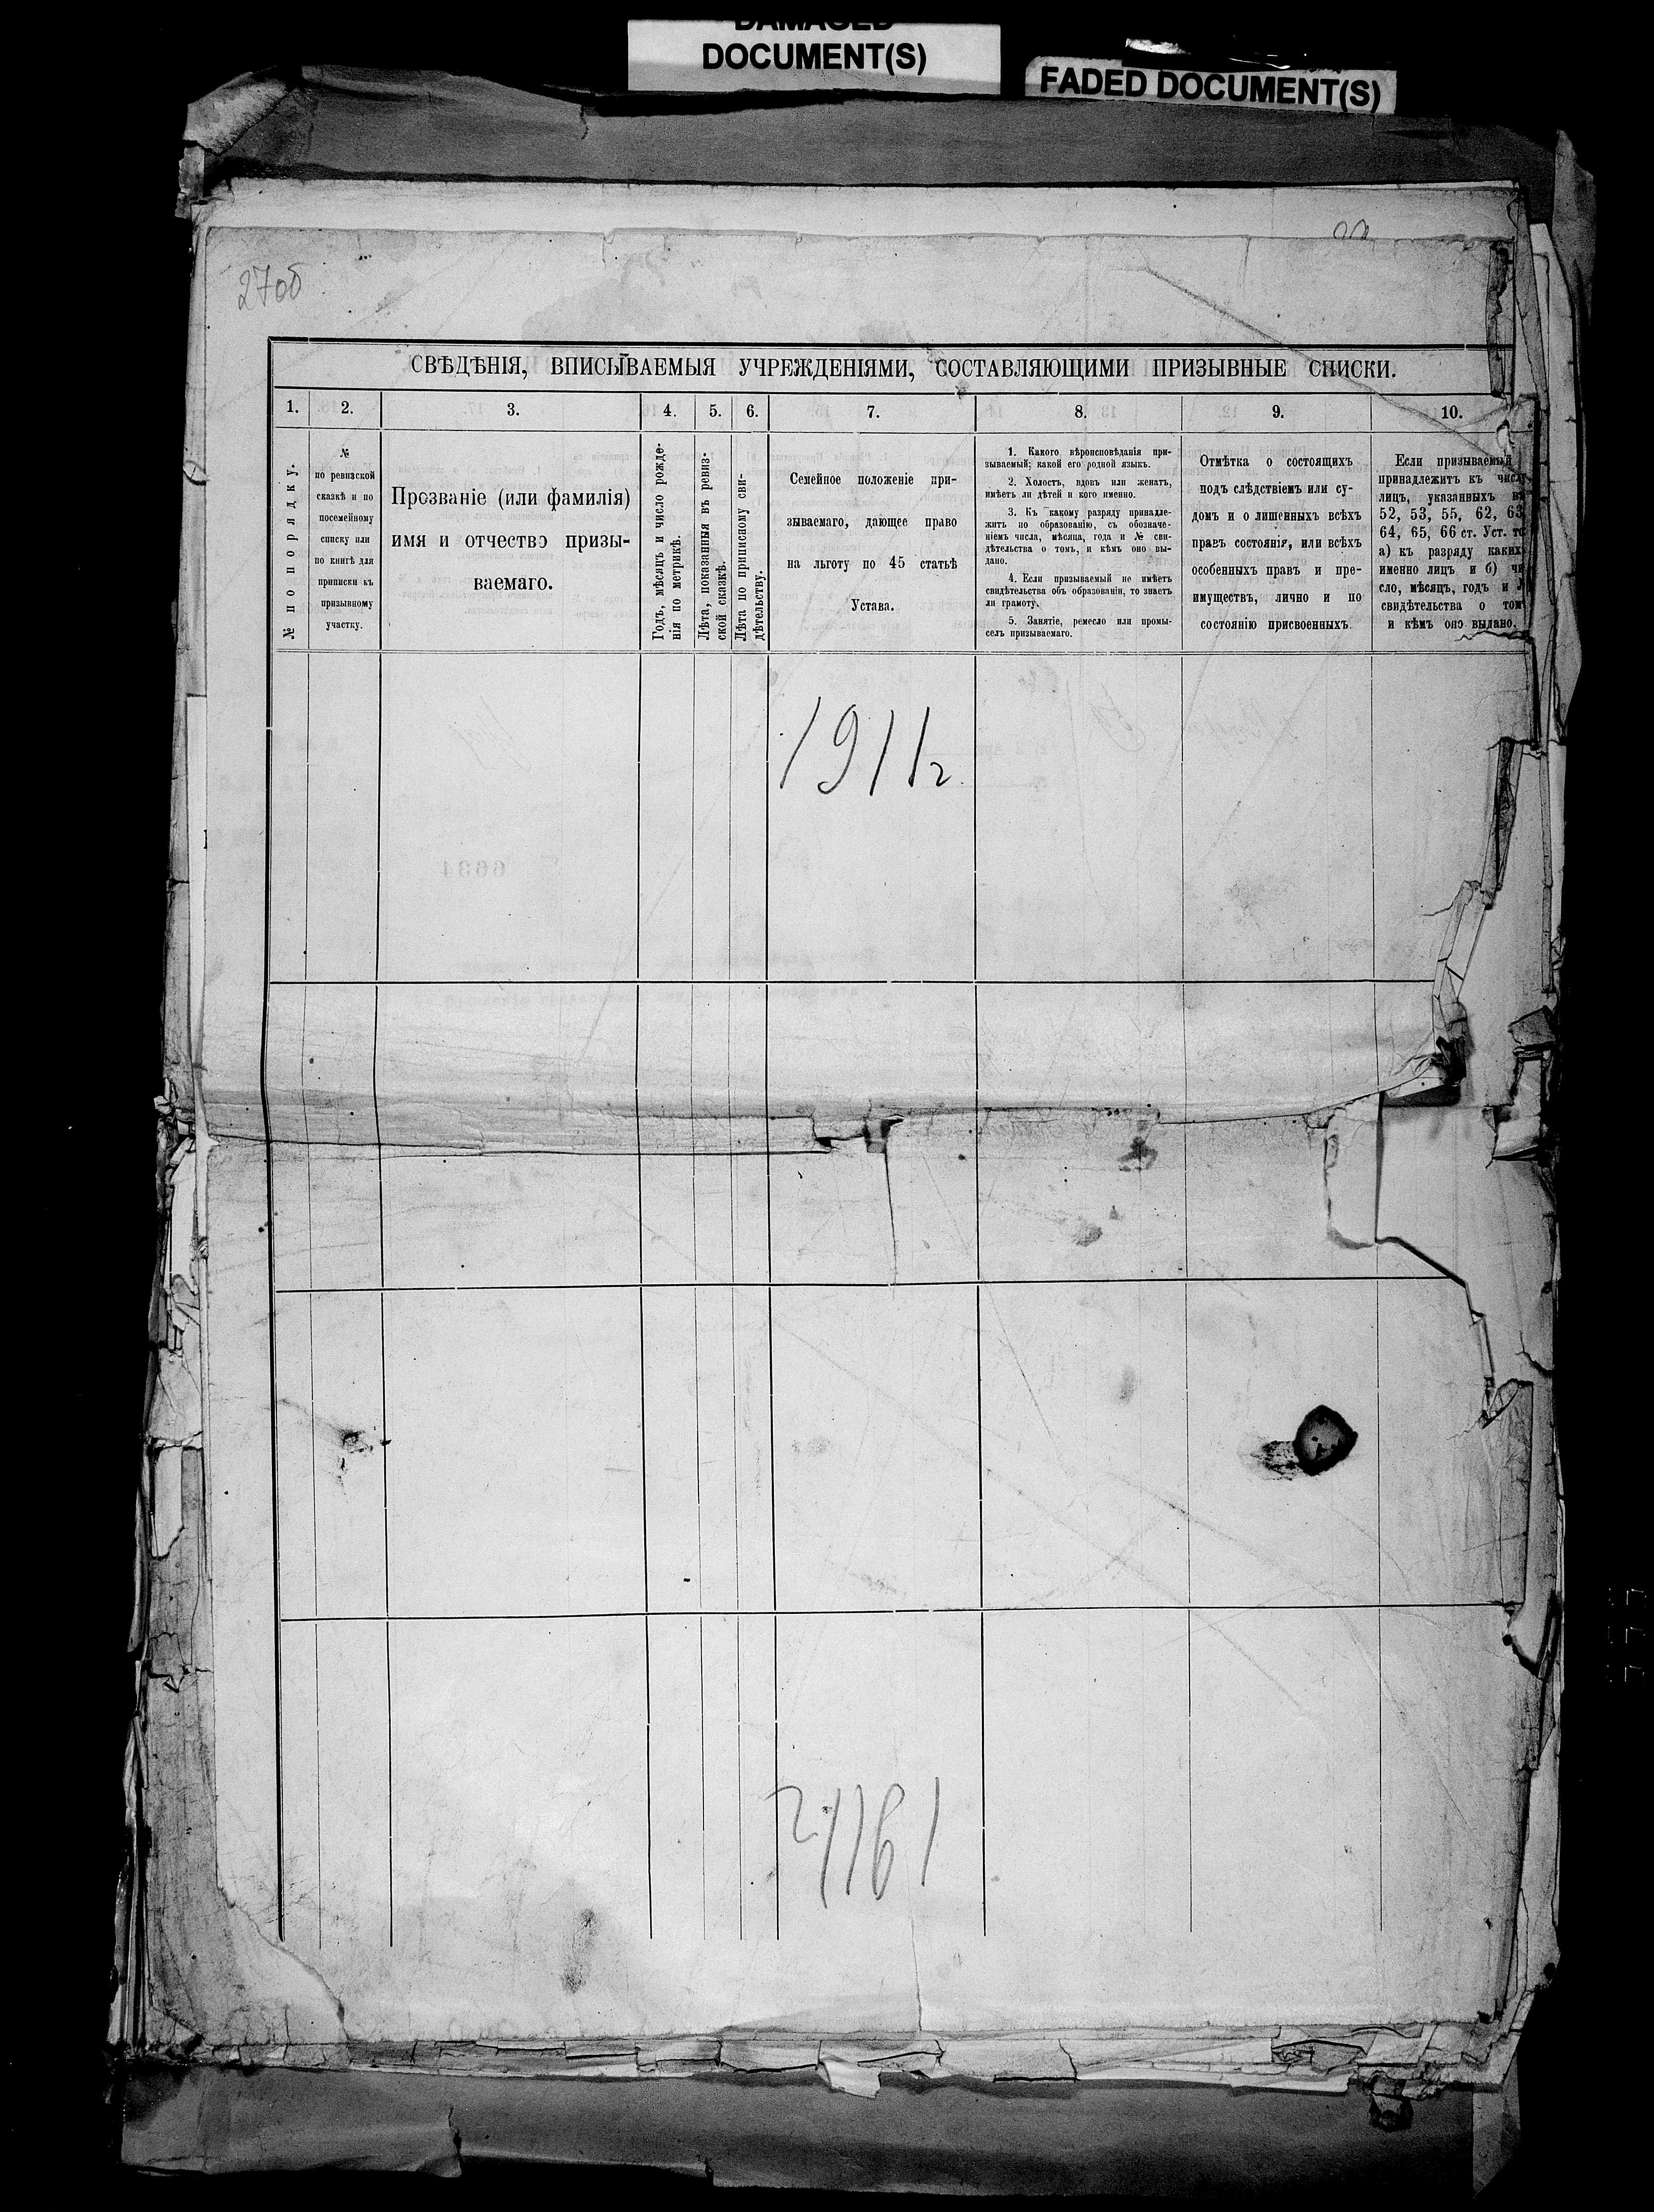 DAMAGED
DOCUMENT(S)
FADED DOCUMENT(S)
27об
СВѢДѢНІЯ, ВПИСЫВАЕМЫЯ УЧРЕЖДЕНІЯМИ, СОСТАВЛЯЮЩИМИ ПРИЗЫВНЫЕ СПИСКИ.
1. 2. 3. 4. 5. 6. 7. 8. 9. 10.
№ по порядку.
№
по ревизской
сказкѣ и по
посемейному
списку или
по книгѣ для
приписки къ
призывному
участку.
Прозваніе (или фамилія)
имя и отчество призы-
ваемаго.
Годъ, мѣсяцъ и число рожде-
нія по метрикѣ.
Лѣта, показанныя въ ревиз-
ской сказкѣ.
Лѣта по приписному сви-
дѣтельству.
Семейное положеніе при-
зываемаго, дающее право
на льготу по 45 статьѣ
Устава.
1. Какого вѣроисповѣданія при-
зываемый; какой его родной языкъ.
2. Холостъ, вдовъ или женатъ,
имѣетъ ли дѣтей и кого именно.
3. Къ какому разряду принадле-
житъ по образованію, съ обозначе-
ніемъ числа, мѣсяца, года и № сви-
дѣтельства о томъ, и кѣмъ оно вы-
дано.
4. Если призываемый не имѣетъ
свидѣтельства объ образованіи, то знаетъ
ли грамоту.
5. Занятіе, ремесло или промы-
селъ призываемаго.
Отмѣтка о состоящихъ
подъ слѣдствіемъ или су-
домъ и о лишенныхъ всѣхъ
правъ состоянія, или всѣхъ
особенныхъ правъ и пре-
имуществъ, лично и по
состоянію присвоенныхъ.
Если призываемый
принадлежитъ къ числу
лицъ, указанныхъ въ
52, 53, 55, 62, 63
64, 65, 66 ст. Уст. то
а) къ разряду какихъ
именно лицъ и б) чи
сло, мѣсяцъ, годъ и №
свидѣтельства о томъ
и кѣмъ оно выдано.
1911г.
1911г